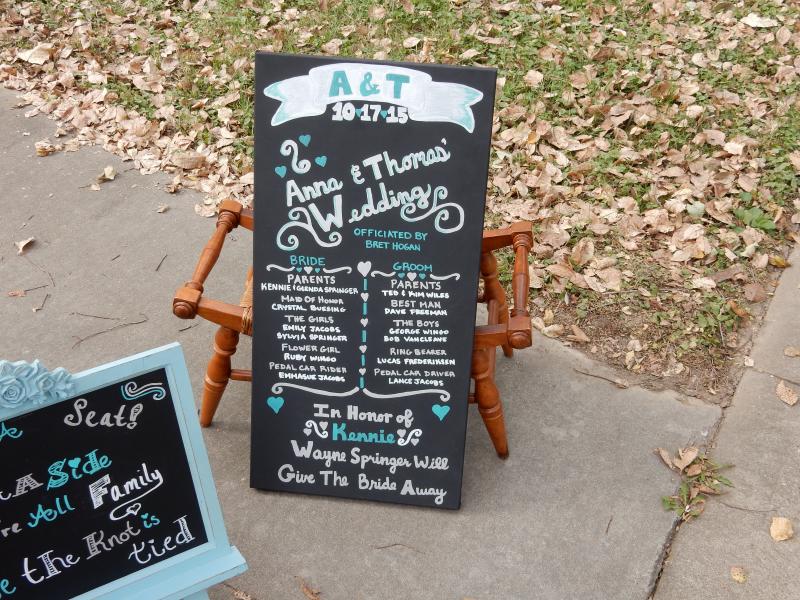 A & T
10·17·15
Anna & Thomas'
Wedding
OFFICIATED BY
BRET HOGAN
BRIDE
PARENTS
KENNIE & GLENDA SPRINGER
MAID OF HONOR
CRYSTAL BUESING
THE GIRLS
EMILY JACOBS
SYLVIA SPRINGER
FLOWER GIRL
RUBY WINGO
PEDAL CAR RIDER
EMMAGUE JACOBS
GROOM
PARENTS
TED & KIM WILES
BEST MAN
DAVE FREEMAN
THE BOYS
GEORGE WINGO
BOB VANCLEAVE
RING BEARER
LUCAS FREDERIKSEN
PEDAL CAR DRIVER
LANCE JACOBS
In Honor of
Kennie
Wayne Springer Will
Give The Bride Away
A Seat!
A Side
're All Family
the Knot is
tied